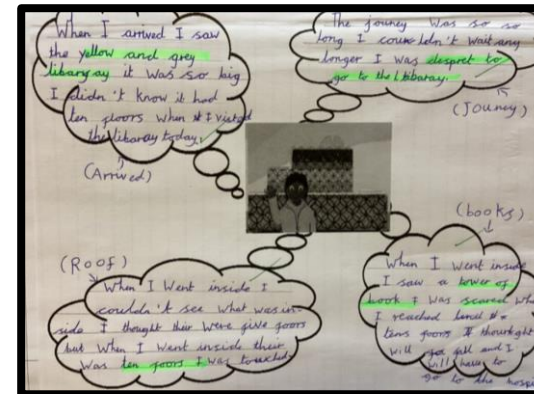 When I arrived I saw
the yellow and grey
libaray it was so big
I didn't know it had
ten floors when I visted
the libaray today.
(Arrived)
The jouney was so so
long I couldn't wait any
longer I was despret to
go to the libbaray.
(Jouney)
(Roof)
When I Went inside I
couldn't see what was in-
side I thought their were five foors
but When I Went inside their
was ten foors I was touched.
(books)
When I went inside
I saw a tower of
book I was scared
I reached level
tens foors I thourght
will fall and I
will have to
go to the